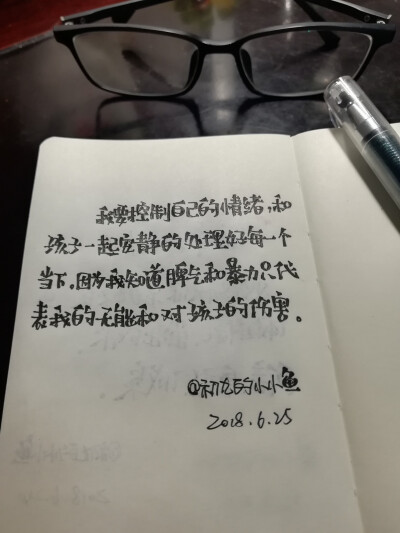 我要控制自己的情绪,和
孩子一起安静的处理好每一个
当下,因为我知道脾气和暴力只代
表我的无能和对孩子的伤害。
的小小鱼
2018.6.25